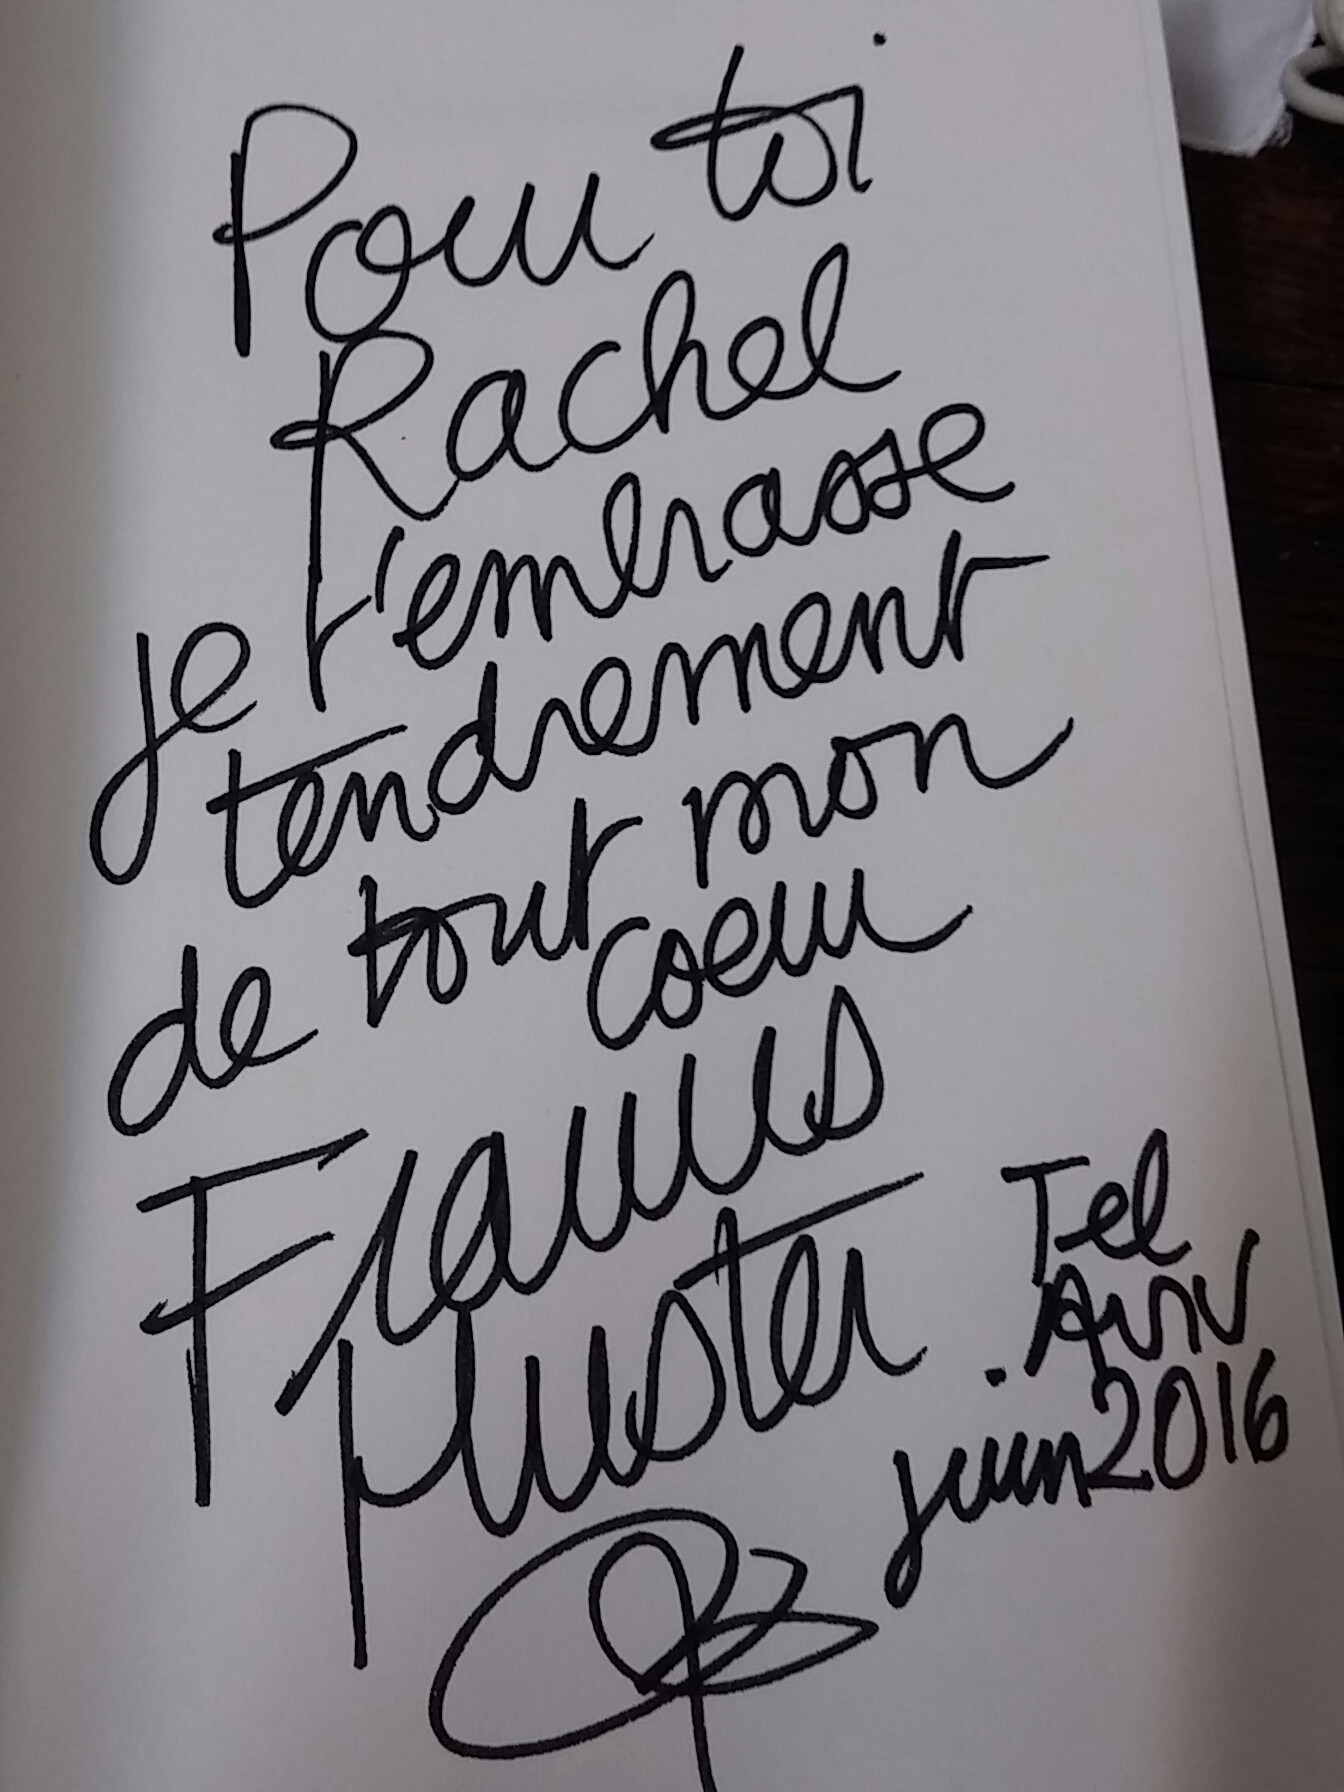 Pour toi
Rachel
je t'embrasse
tendrement
de tout mon
coeur
Francis
Huster
Tel
Aviv
juin 2016